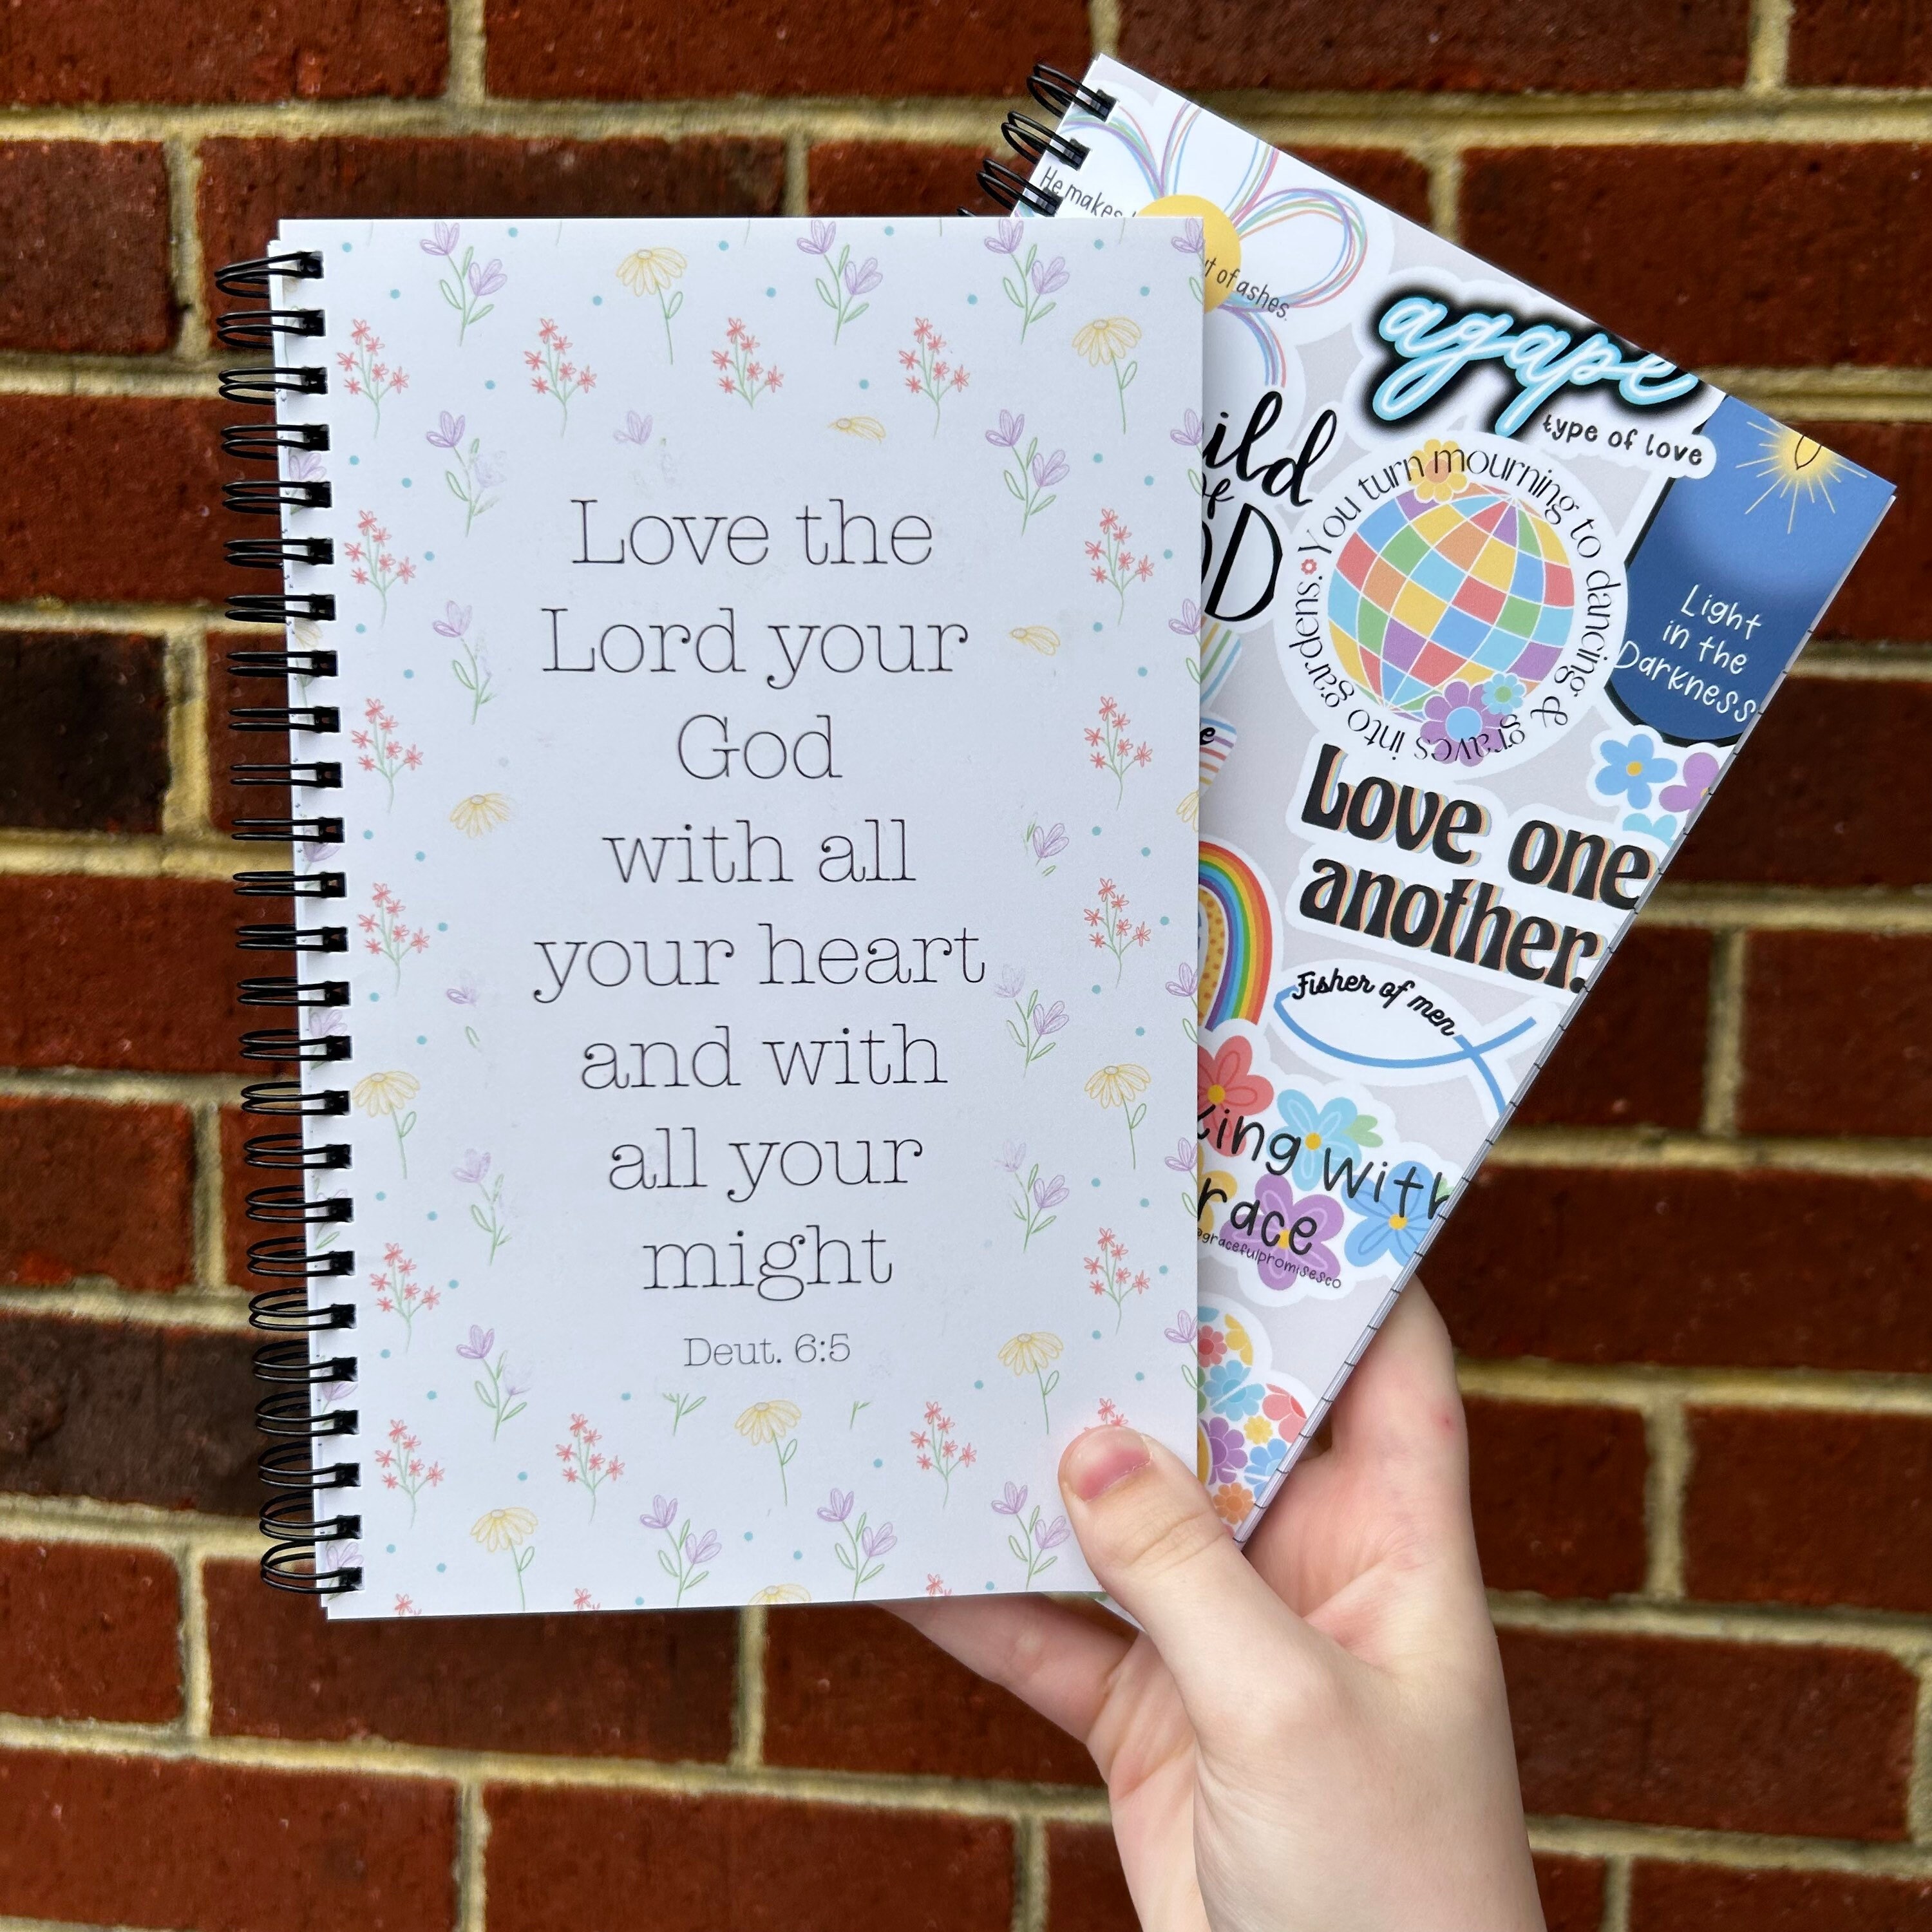 Love the
Lord your
God
with all
your heart
and with
all your
might
Deut. 6:5
He makes
of ashes.
agape
type of love
of
You turn mourning to dancing & graves into gardens.
Light
in the
Darkness
Love one
another.
Fisher of men
with